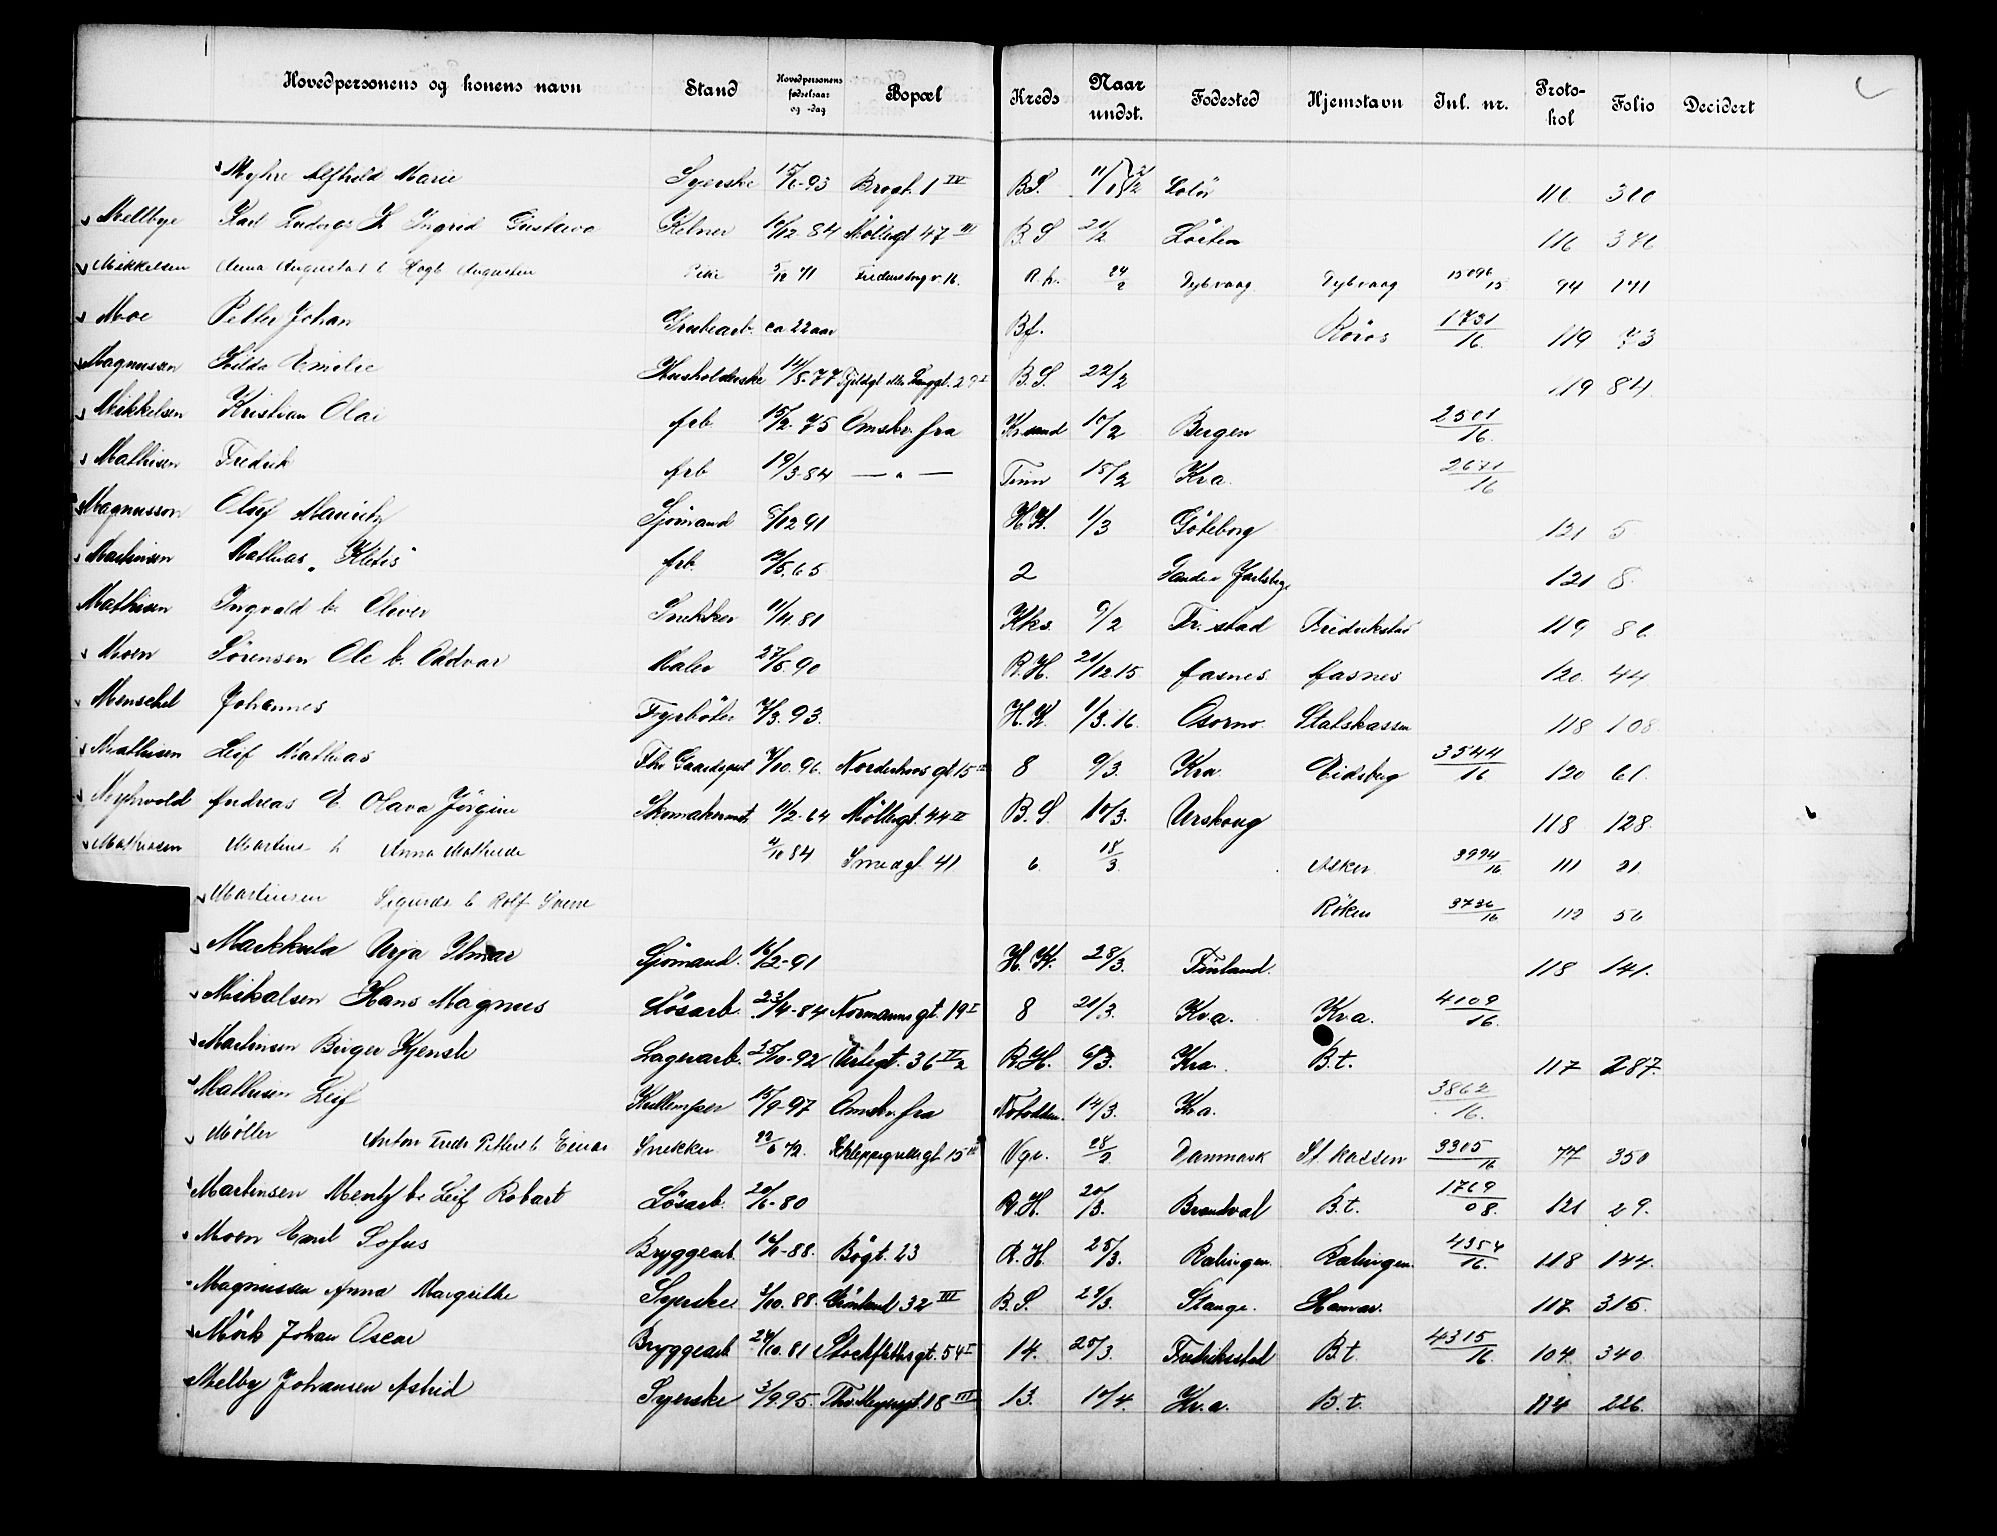 Hovedpersonens og konens navn Stand Hovedpersonens fødselsaar og -dag Bopæl Kreds Naar undst. Fødested Hjemstavn Inl. nr. Protokol Folio Decidert
Myhre Alfhild Marie Syerske 15/6-93 Brogt. 1 IV B.S. 116 310
Mellbye Karl Ingrid Gustava Kelner 10/12 84 Møllegt 47 III B.S 21/2 Løiten 116 346
Mikkelsen Anna Augusta b. Augusten Pike 5/10 71 Fredensborg v. 16. R.h. 24/2 Dybvaag Dybvaag 15096/15 94 141
Moe Petter Johan Grubearb. ca 22 aar Bf. Røros 1731/16. 119 73
Magnussen Hilda Emilie Husholderske 14/8.77 B.S. 22/2 119 84.
Mikkelsen Kristian Olai Arb 15/2.75 Omskr. fra Kr.sand 10/2 Bergen 2501/16.
Mathisen Fredrik Arb 19/3.84 — " — Tinn 15/2 Kra. 2671/16
Magnusson Oluf Mauritz Sjømand 5/12 91 H.K. 1/3 Göteborg 121 5
Martinsen Mathias "Kletis" Arb. 12/5.65 2 Sande Jarlsberg 121 8.
Mathisen Ingvald b. Oliver Snekker 11/11.81 Kks. 9/2 Fr.stad Fredrikstad 119 86
Moen Sørensen Ole b. Oddvar Maler 27/5.90 R.H. 21/12.15 Aasnes. Aasnes 120. 44
Menschel Johannes Fyrbøter 7/3.93. H.K. 1/3.16. Osorno. Statskassen 118 108.
Mathisen Leif Mathias Fhv. Gaardsgut 7/10.96. Norderhovsgt 15 8 9/3. Kra Eidsberg 3544/16 120 61.
Myhrvold Andreas E Olava Jørgine Skomakermst. 11/2-64 Møllegt. 44 II B.S. 10/3. Urskoug 118 128.
Mathiasen Martine b. Anna Mathilde 2/10 84 Smedgt 41 6. 18/3 Asker 3994/16. 111 21.
Martinsen Sigurds b. Rolf Sverre Røken 3736/16 112 56
Markkula Urja Ilmar Sjømand. 16/2-91 H.K. 28/3. Finland. 118 141.
Mikalsen Hans Magnus Løsarb. 23/4-84 Normannsgt. 19 I 8 21/3. Kra. Kra. 4109/16.
Martinsen Birger Kjensli Lagerarb. 25/10-92 36 II 2 R.H. 6/3. Kra. B.t. 117 287.
Mathisen Leif 15/9-97 Omskr. fra Notodden. 14/3. Kra. 3862/16.
Møller Anton Fredr Petter b. Einar Snekker 22/6 72. Schleppegrellsgt 15 III Vgv. 28/2. Danmark St. kassen 3305/16 77 350
Martinsen Mentz b. Leif Robart Løsarb. 20/6-80 R.H. 20/3. Brandval B.t. 1769/08. 121 29.
Moen Emil Sofus Bryggearb. 88. Bøgt. 23 R.H. 25/3. Rælingen. Rælingen. 4354/16. 118 144.
Magnussen Anna Margrithe Syerske 2/10.88. Grønland 32 III B.S. 29/3. Stange. Hamar. 117 315.
Mörk Johan Oscar Bryggearb 24/10.81 Stockflethsgt. 54 I 14. 25/3. Fredriksstad B.t. 4315/16. 104. 340.
Melby Johansen Astrid Syerske 3/9.95. Ths. Meyersgt. 18 III 13. 10/4. Kr.a. B.t. 114 226.